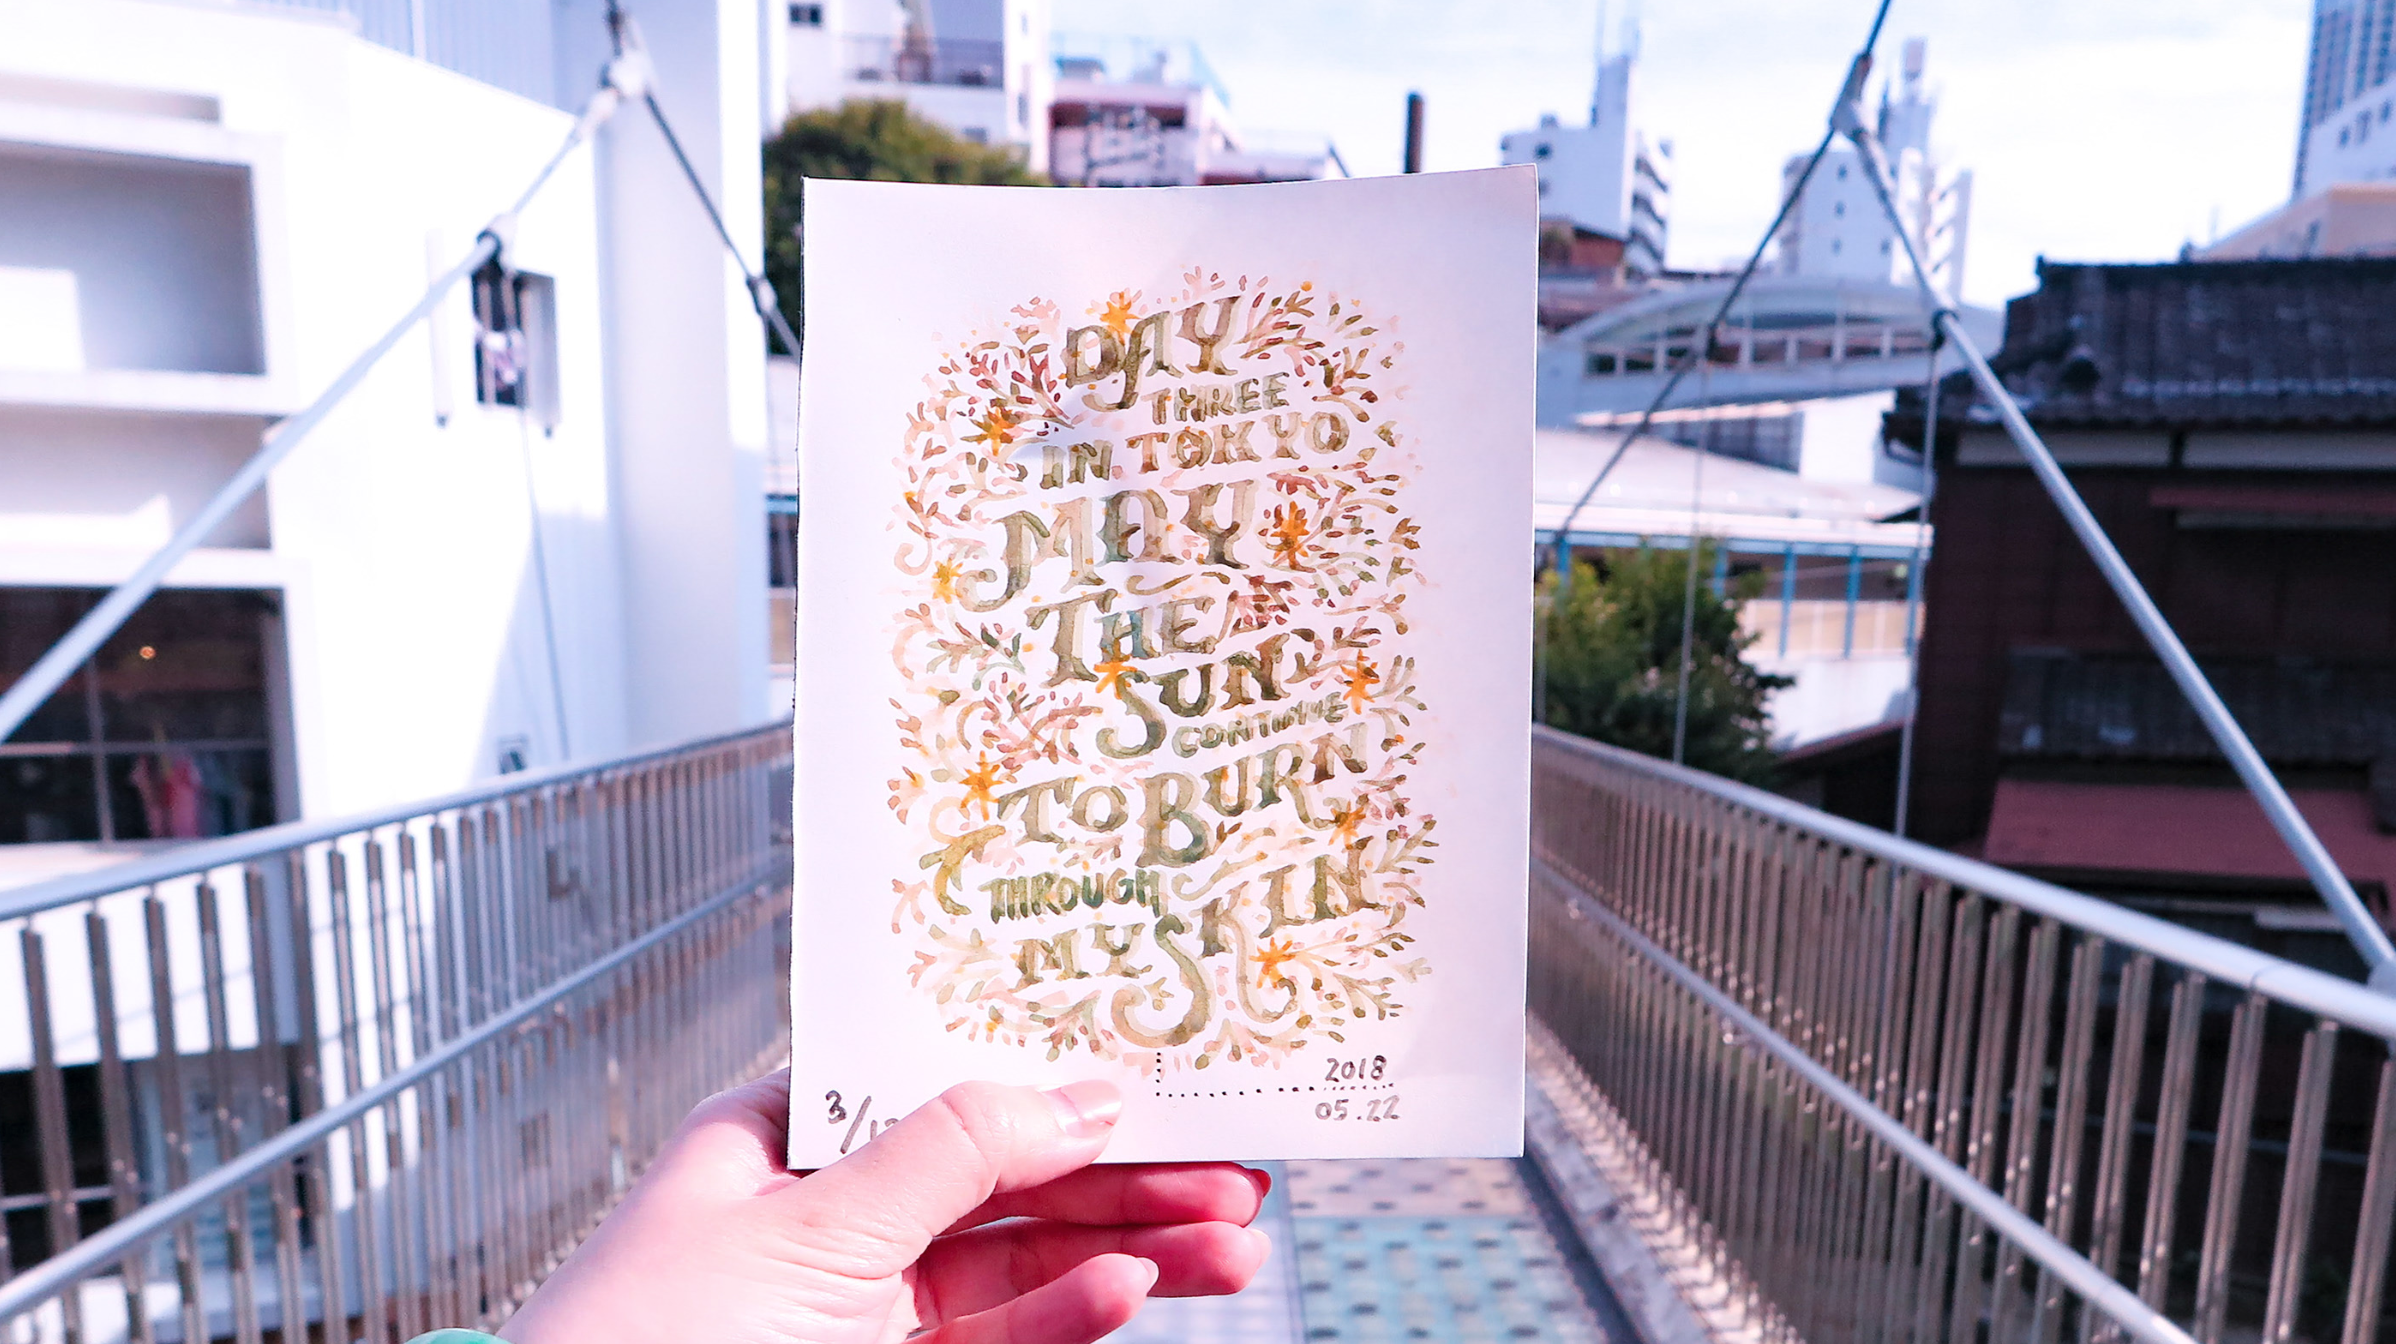 DAY
THREE
IN TOKYO
MAY
THE
SUN
CONTINUE
TO BURN
THROUGH
MY SKIN
2018
05.22